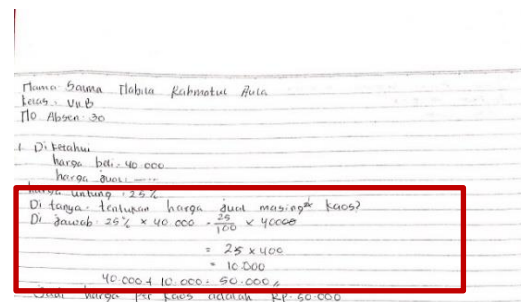 Nama Salma Nabila Rahmatul Aula
kelas : VII B
No Absen : 30
1. Diketahui
harga beli = 40.000
harga jual = ......
harga untung : 25%
Di tanya : tentukan harga jual masing² kaos?
Di jawab : 25% × 40.000 = 25/100 × 40000
= 25 × 400
= 10.000
40.000 + 10.000 = 50.000,,
Jadi harga per kaos adalah Rp. 50.000